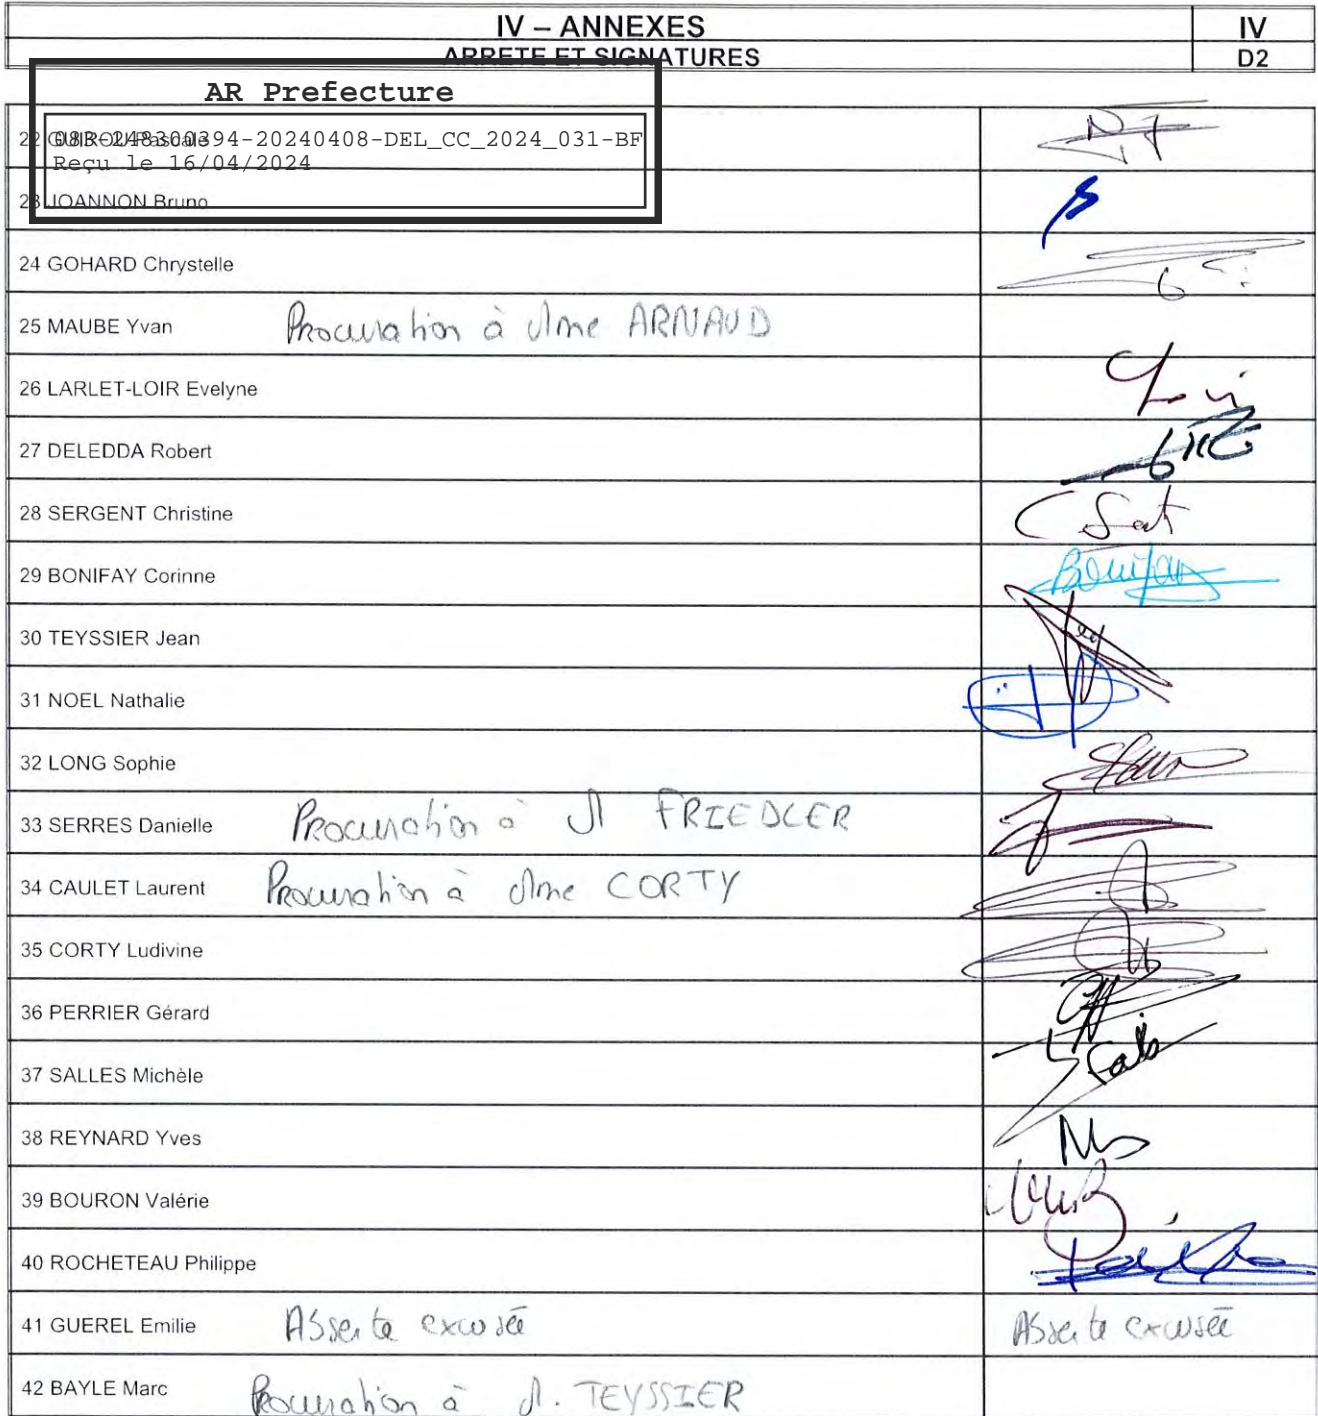 IV – ANNEXES
IV
ARRETE ET SIGNATURES
D2
AR Prefecture
083-248300394-20240408-DEL_CC_2024_031-BF
Reçu le 16/04/2024
22 GUIROU Pascale
23 JOANNON Bruno
24 GOHARD Chrystelle
25 MAUBE Yvan Procuration à Mme ARNAUD
26 LARLET-LOIR Evelyne
27 DELEDDA Robert
28 SERGENT Christine
29 BONIFAY Corinne Bonifay
30 TEYSSIER Jean
31 NOEL Nathalie
32 LONG Sophie
33 SERRES Danielle Procuration à M FRIEDLER
34 CAULET Laurent Procuration à Mme CORTY
35 CORTY Ludivine
36 PERRIER Gérard
37 SALLES Michèle
38 REYNARD Yves
39 BOURON Valérie
40 ROCHETEAU Philippe
41 GUEREL Emilie Absente excusée Absente excusée
42 BAYLE Marc Procuration à M. TEYSSIER